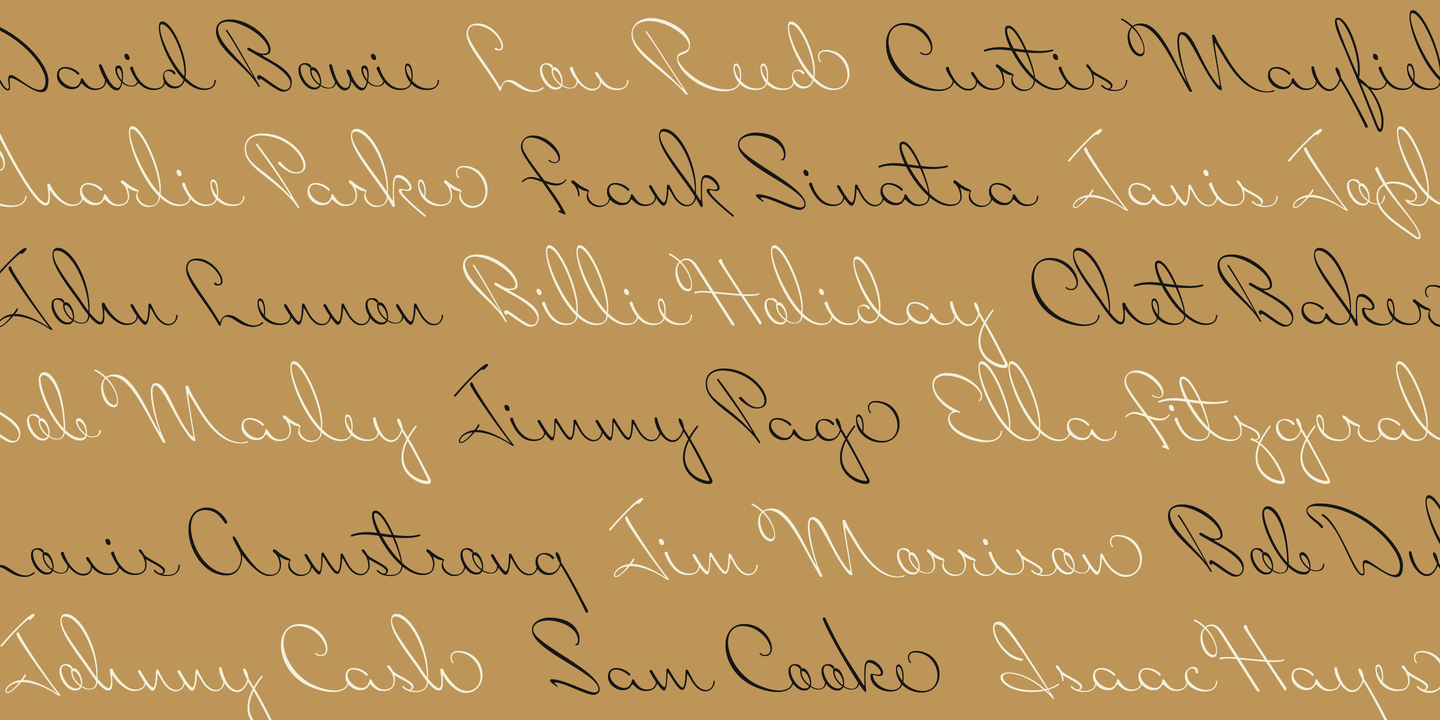 David Bowie Lou Reed Curtis Mayfiel
Charlie Parker Frank Sinatra Janis Jopl
John Lennon Billie Holiday Chet Baker
Bob Marley Jimmy Page Ella Fitzgeral
Louis Armstrong Jim Morrison Bob Du
Johnny Cash Sam Cooke Isaac Hayes